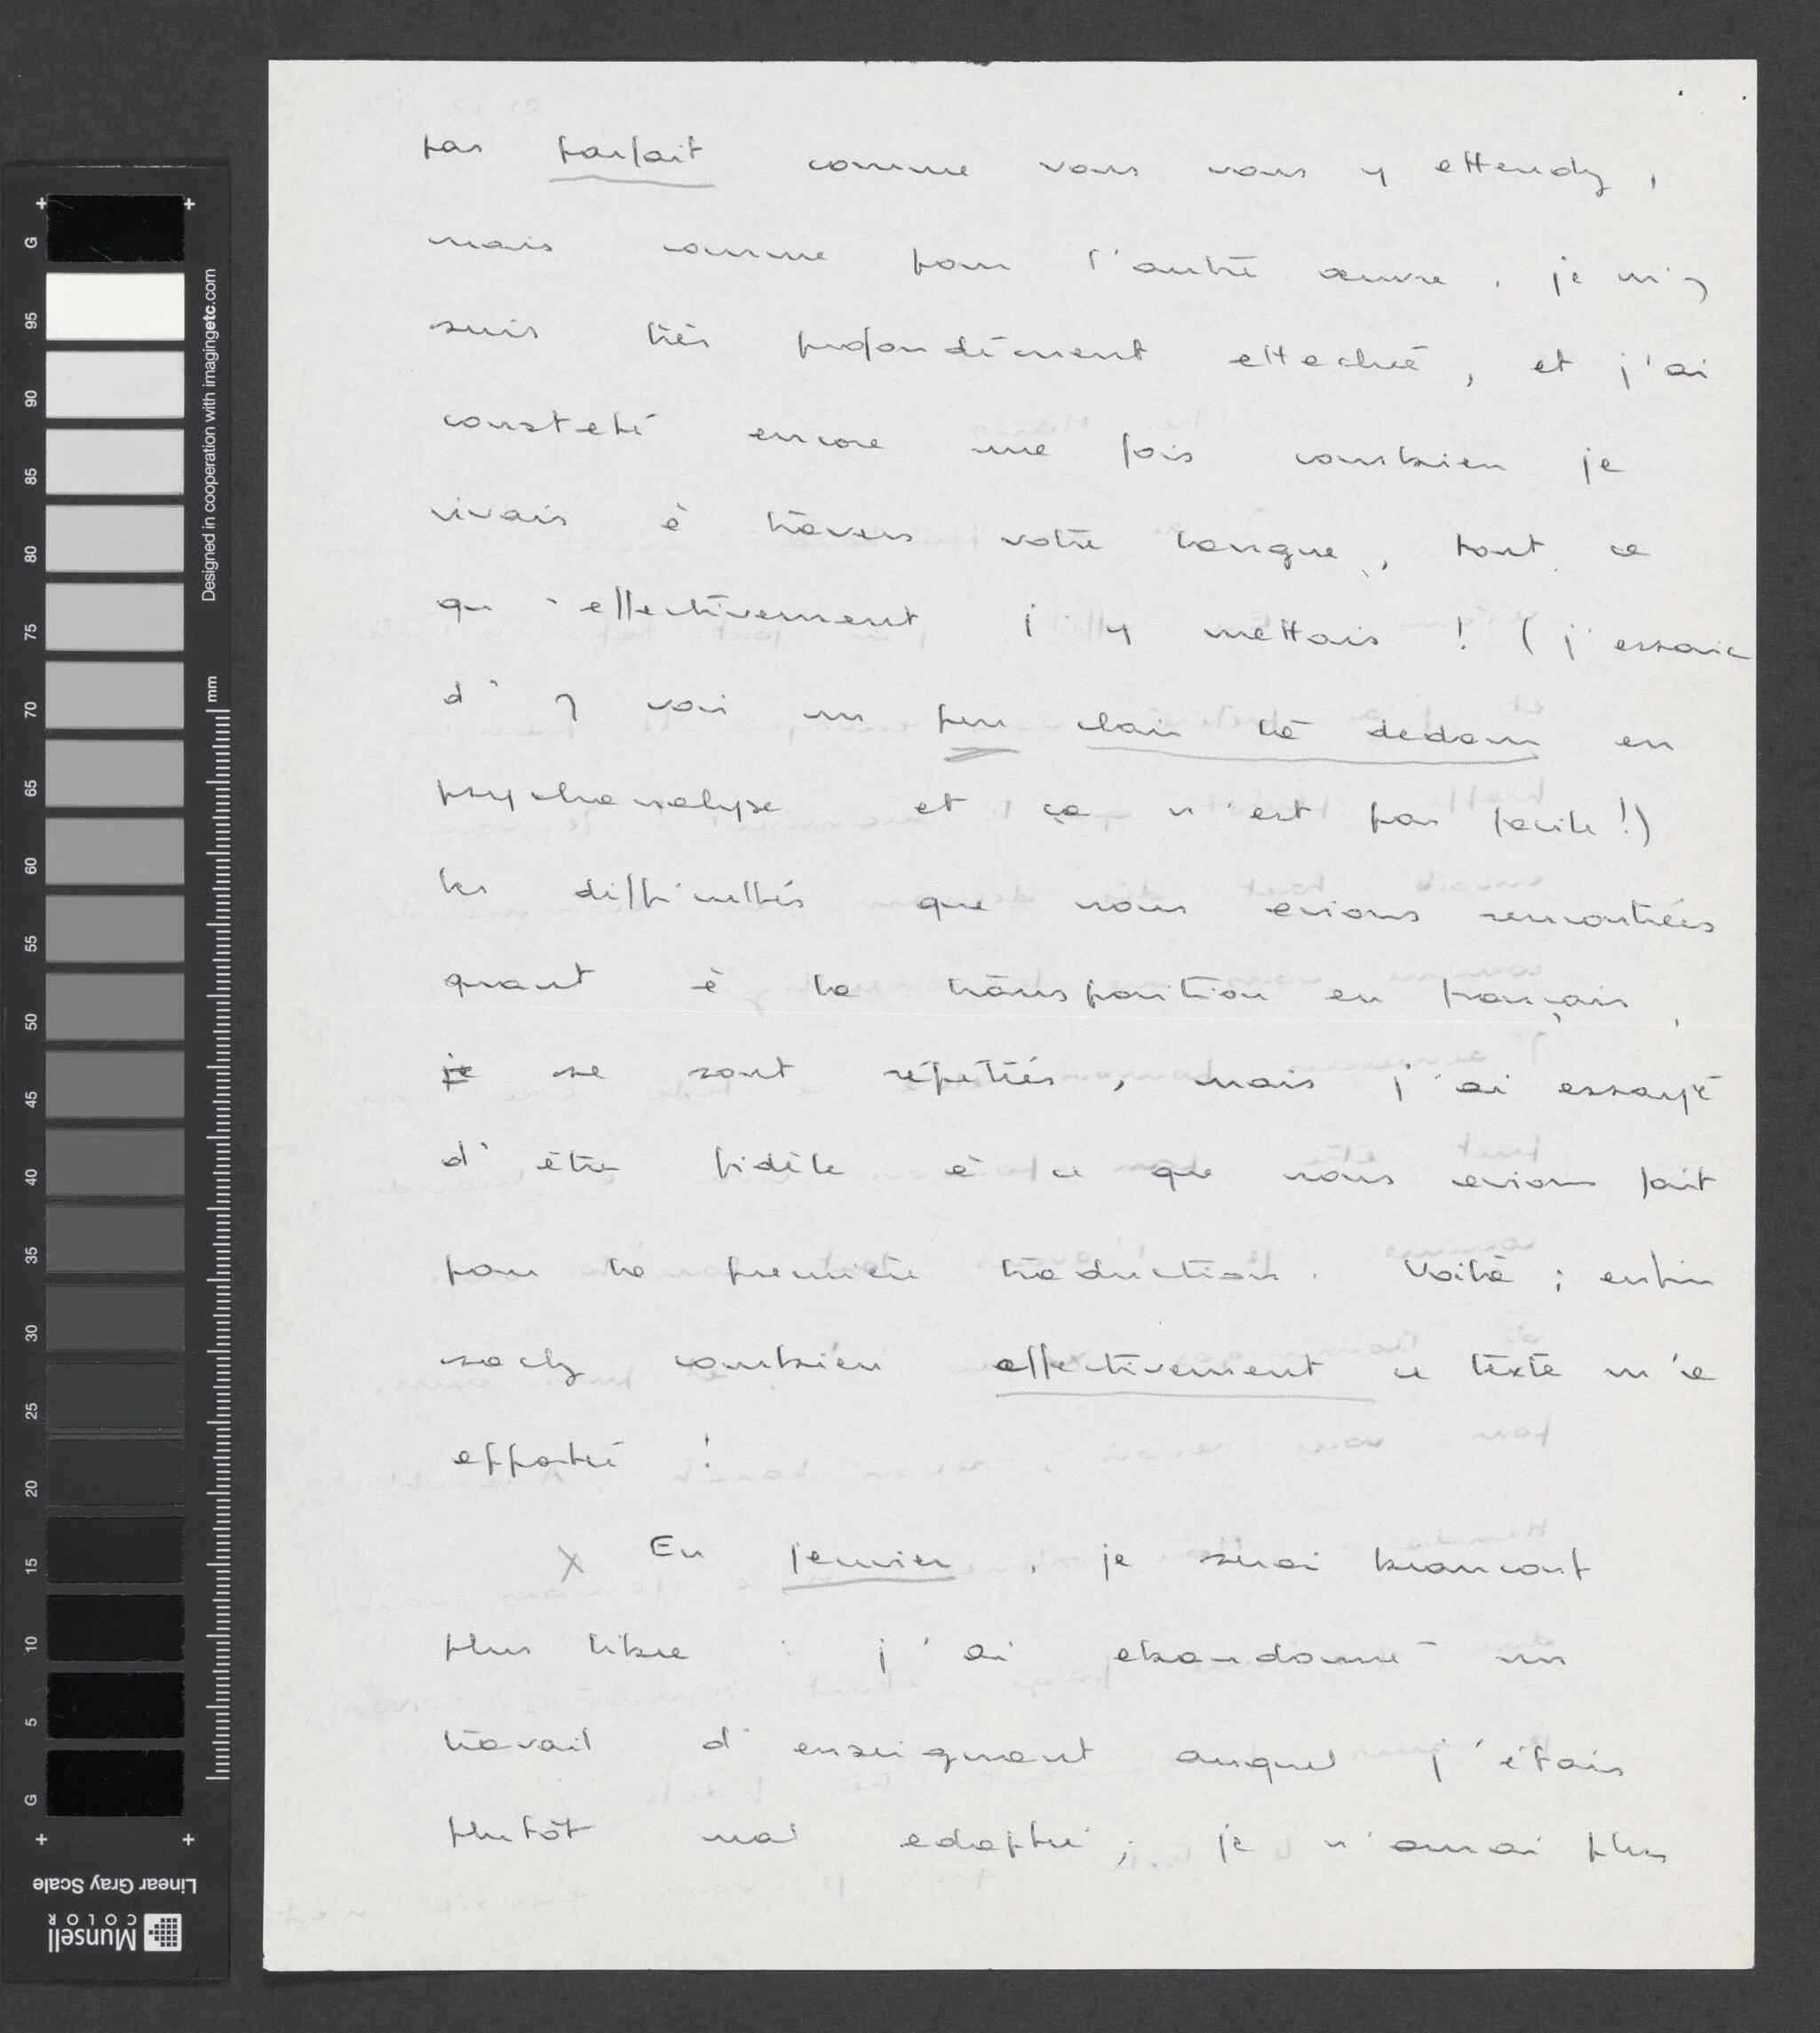 pas parfait comme vous vous y attendez,
mais comme pour l'autre œuvre, je m'y
suis très profondément attachée, et j'ai
constaté encore une fois combien je
vivais à travers votre langue, tout ce
qu'effectivement j'y mettais ! (j'essaie
d'y voir un peu clair là dedans en
psychanalyse et ça n'est pas facile !)
les difficultés que nous avions rencontrées
quant à la transposition en français,
je se sont répétées, mais j'ai essayé
d'être fidèle à ce que nous avions fait
pour la première traduction. Voilà ; enfin
sachez combien effectivement ce texte m'a
apporté !
X En janvier, je serai beaucoup
plus libre : j'ai abandonné un
travail d'enseignant auquel j'étais
plutôt mal adaptée ; je n'aurai plus
G 95 90 85 80 75 70 65 60 55 50 45 40 35 30 25 20 15 10 5 G
Designed in cooperation with imagingetc.com
mm
Linear Gray Scale
Munsell
COLOR